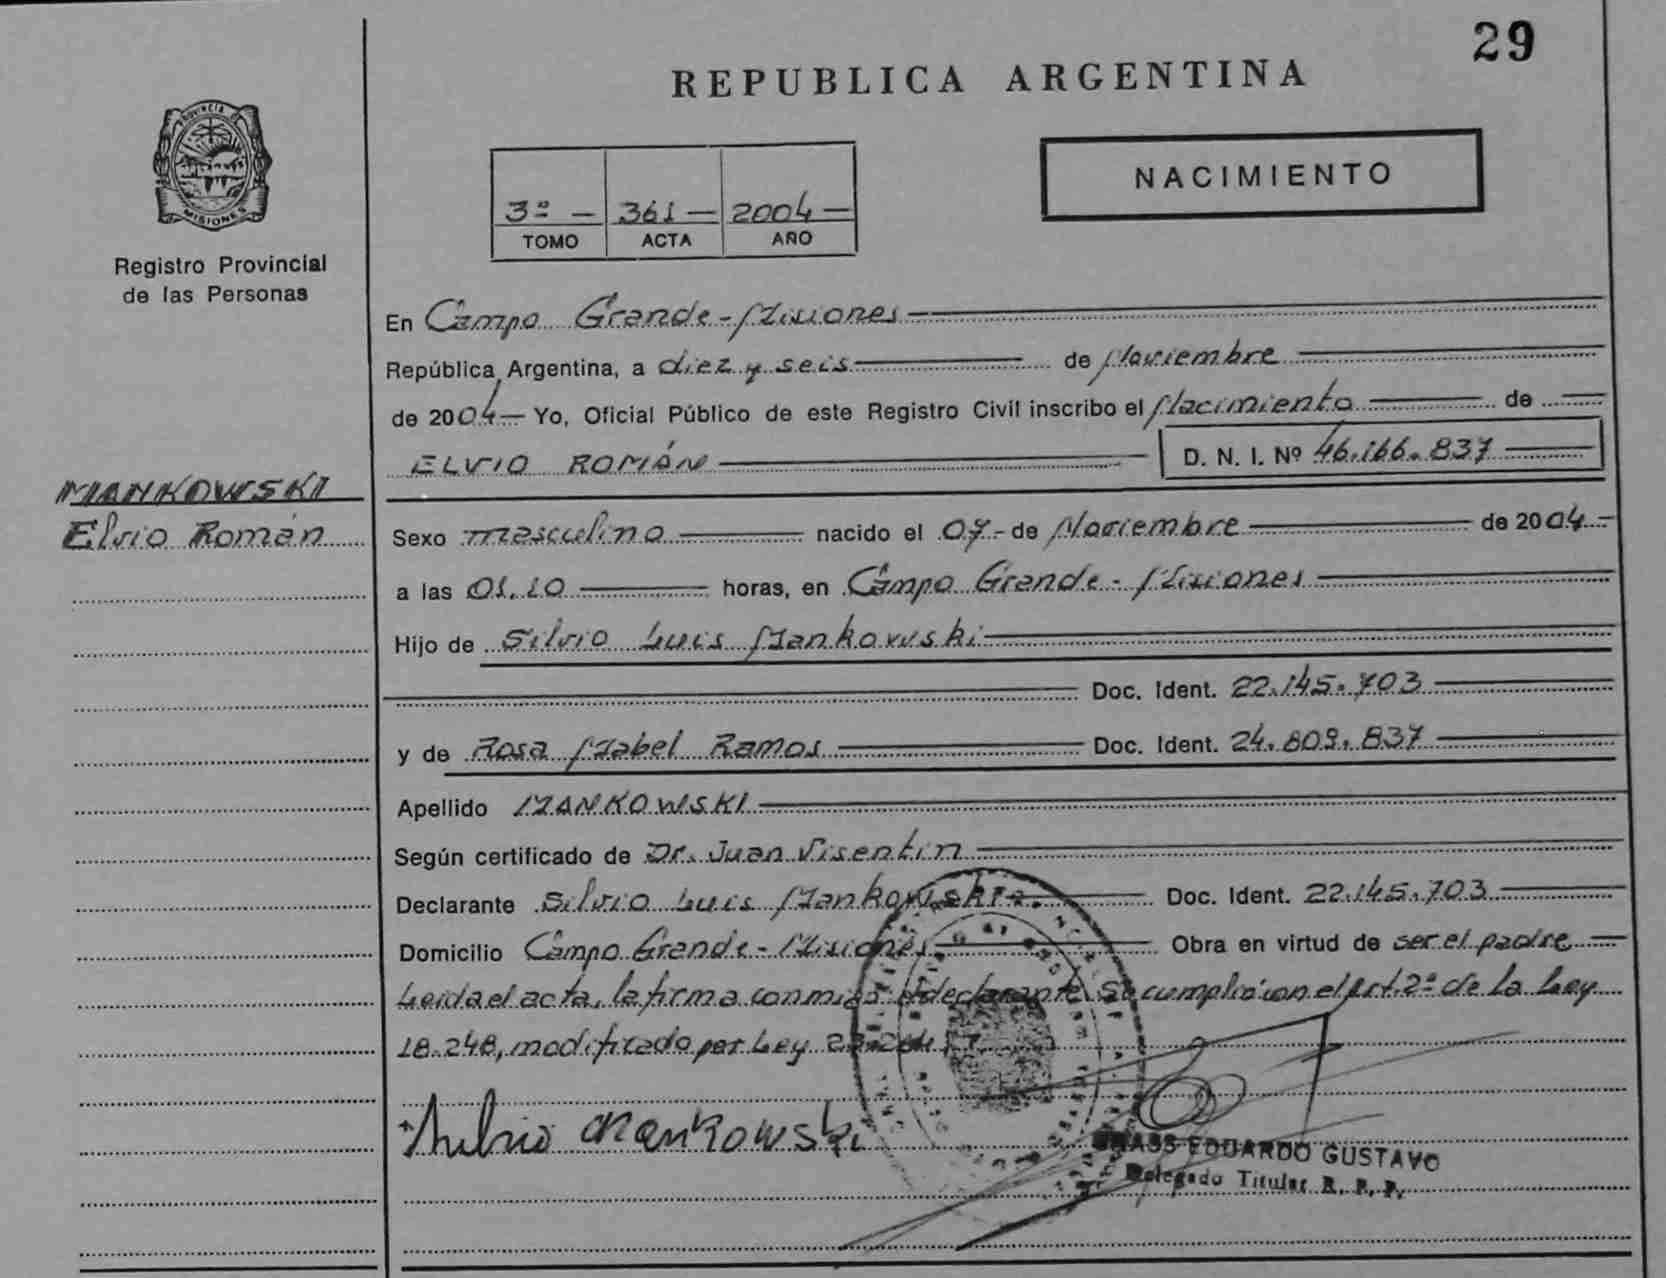 29
REPUBLICA ARGENTINA
PROVINCIA DE
MISIONES
Registro Provincial
de las Personas
3º - 361 - 2004 -
TOMO ACTA AÑO
NACIMIENTO
En Campo Grande - Misiones
República Argentina, a diez y seis de Noviembre
de 2004 - Yo, Oficial Público de este Registro Civil inscribo el Nacimiento de
ELVIO ROMÁN D. N. I. Nº 46.166.837
MANKOWSKI
Elvio Román
Sexo masculino nacido el 07 - de Noviembre de 2004 -
a las 01.10 horas, en Campo Grande - Misiones
Hijo de Silvio Luis Mankowski
Doc. Ident. 22.145.703
y de Rosa Mabel Ramos Doc. Ident. 24.809.837
Apellido MANKOWSKI
Según certificado de Dr. Juan Visentin
Declarante Silvio Luis Mankowski Doc. Ident. 22.145.703
Domicilio Campo Grande - Misiones Obra en virtud de ser el padre
Leida el acta, la firma conmigo el declarante. Se cumplió con el Art. 2º de la Ley
18.248, modificado por Ley
Silvio Mankowski
EDUARDO GUSTAVO
Delegado Titular R. P. P.